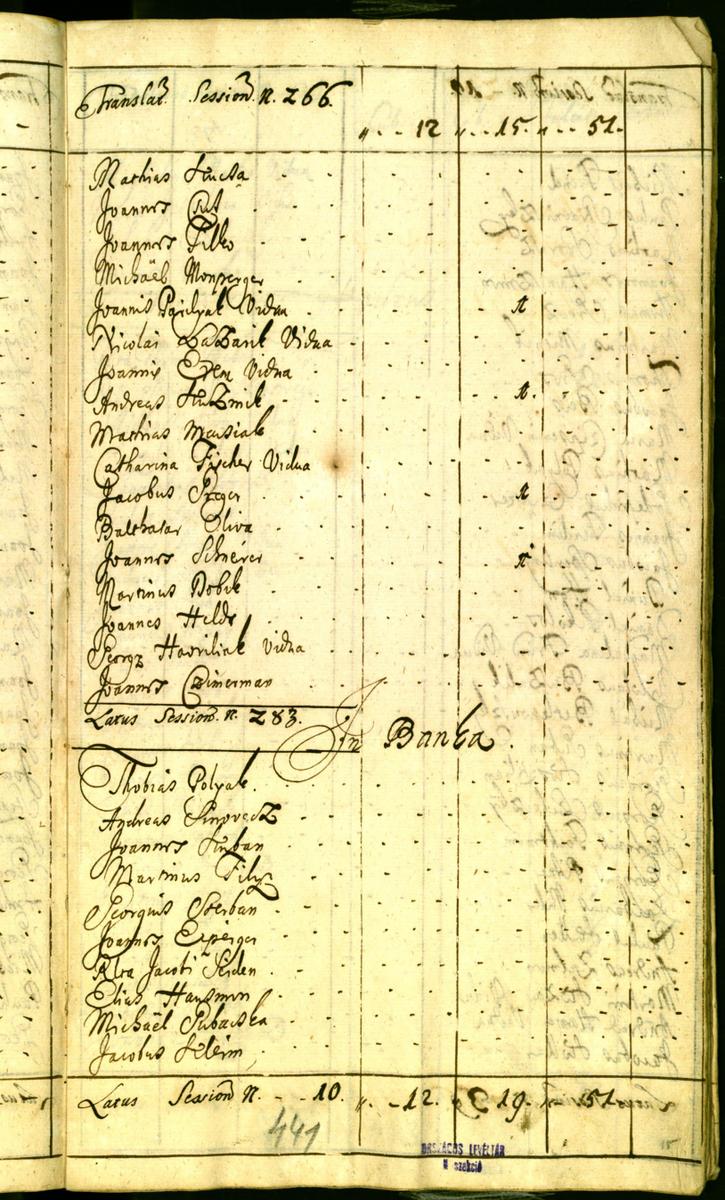 Translat. Session. N. 266.
„ . - 12 „ . . 15. „ . . 51.
Mathias Hucta
Joannes Cut
Joannes Filko
Michaël Monperger
Joannis Vidua 1.
Nicolai LaZarik Vidua
Joannis Vidua
Andreas 1.
Mathias Musiak
Catharina Fischer Vidua
Jacobus Preger 1
Balthasar Oliva
Joannes Schnerer 1
Martinus Bobek
Joannes Helds
Georg Havriliak Vidua
Joannes Czimerman
Latus Session. N. 283.
In Banka.
Thobias Polyak.
Andreas SinovecZ
Joannes Huban
Martinus Filip
Georgius Sterban
Joannes Experger
Rlta Jacobi Seiden
Elias Hausman
Michaël Subacska
Jacobus Kleim
Latus Session N. - - 10. „. - 12. „ 19. „ - 51.
441
ORSZÁGOS LEVÉLTÁR
N szekció